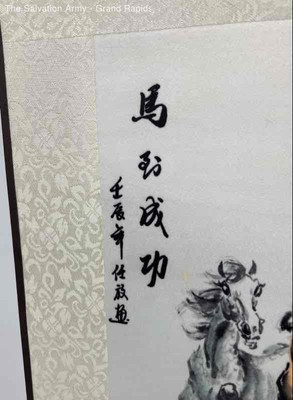 The Salvation Army - Grand Rapids
馬到成功
壬辰年任放畫